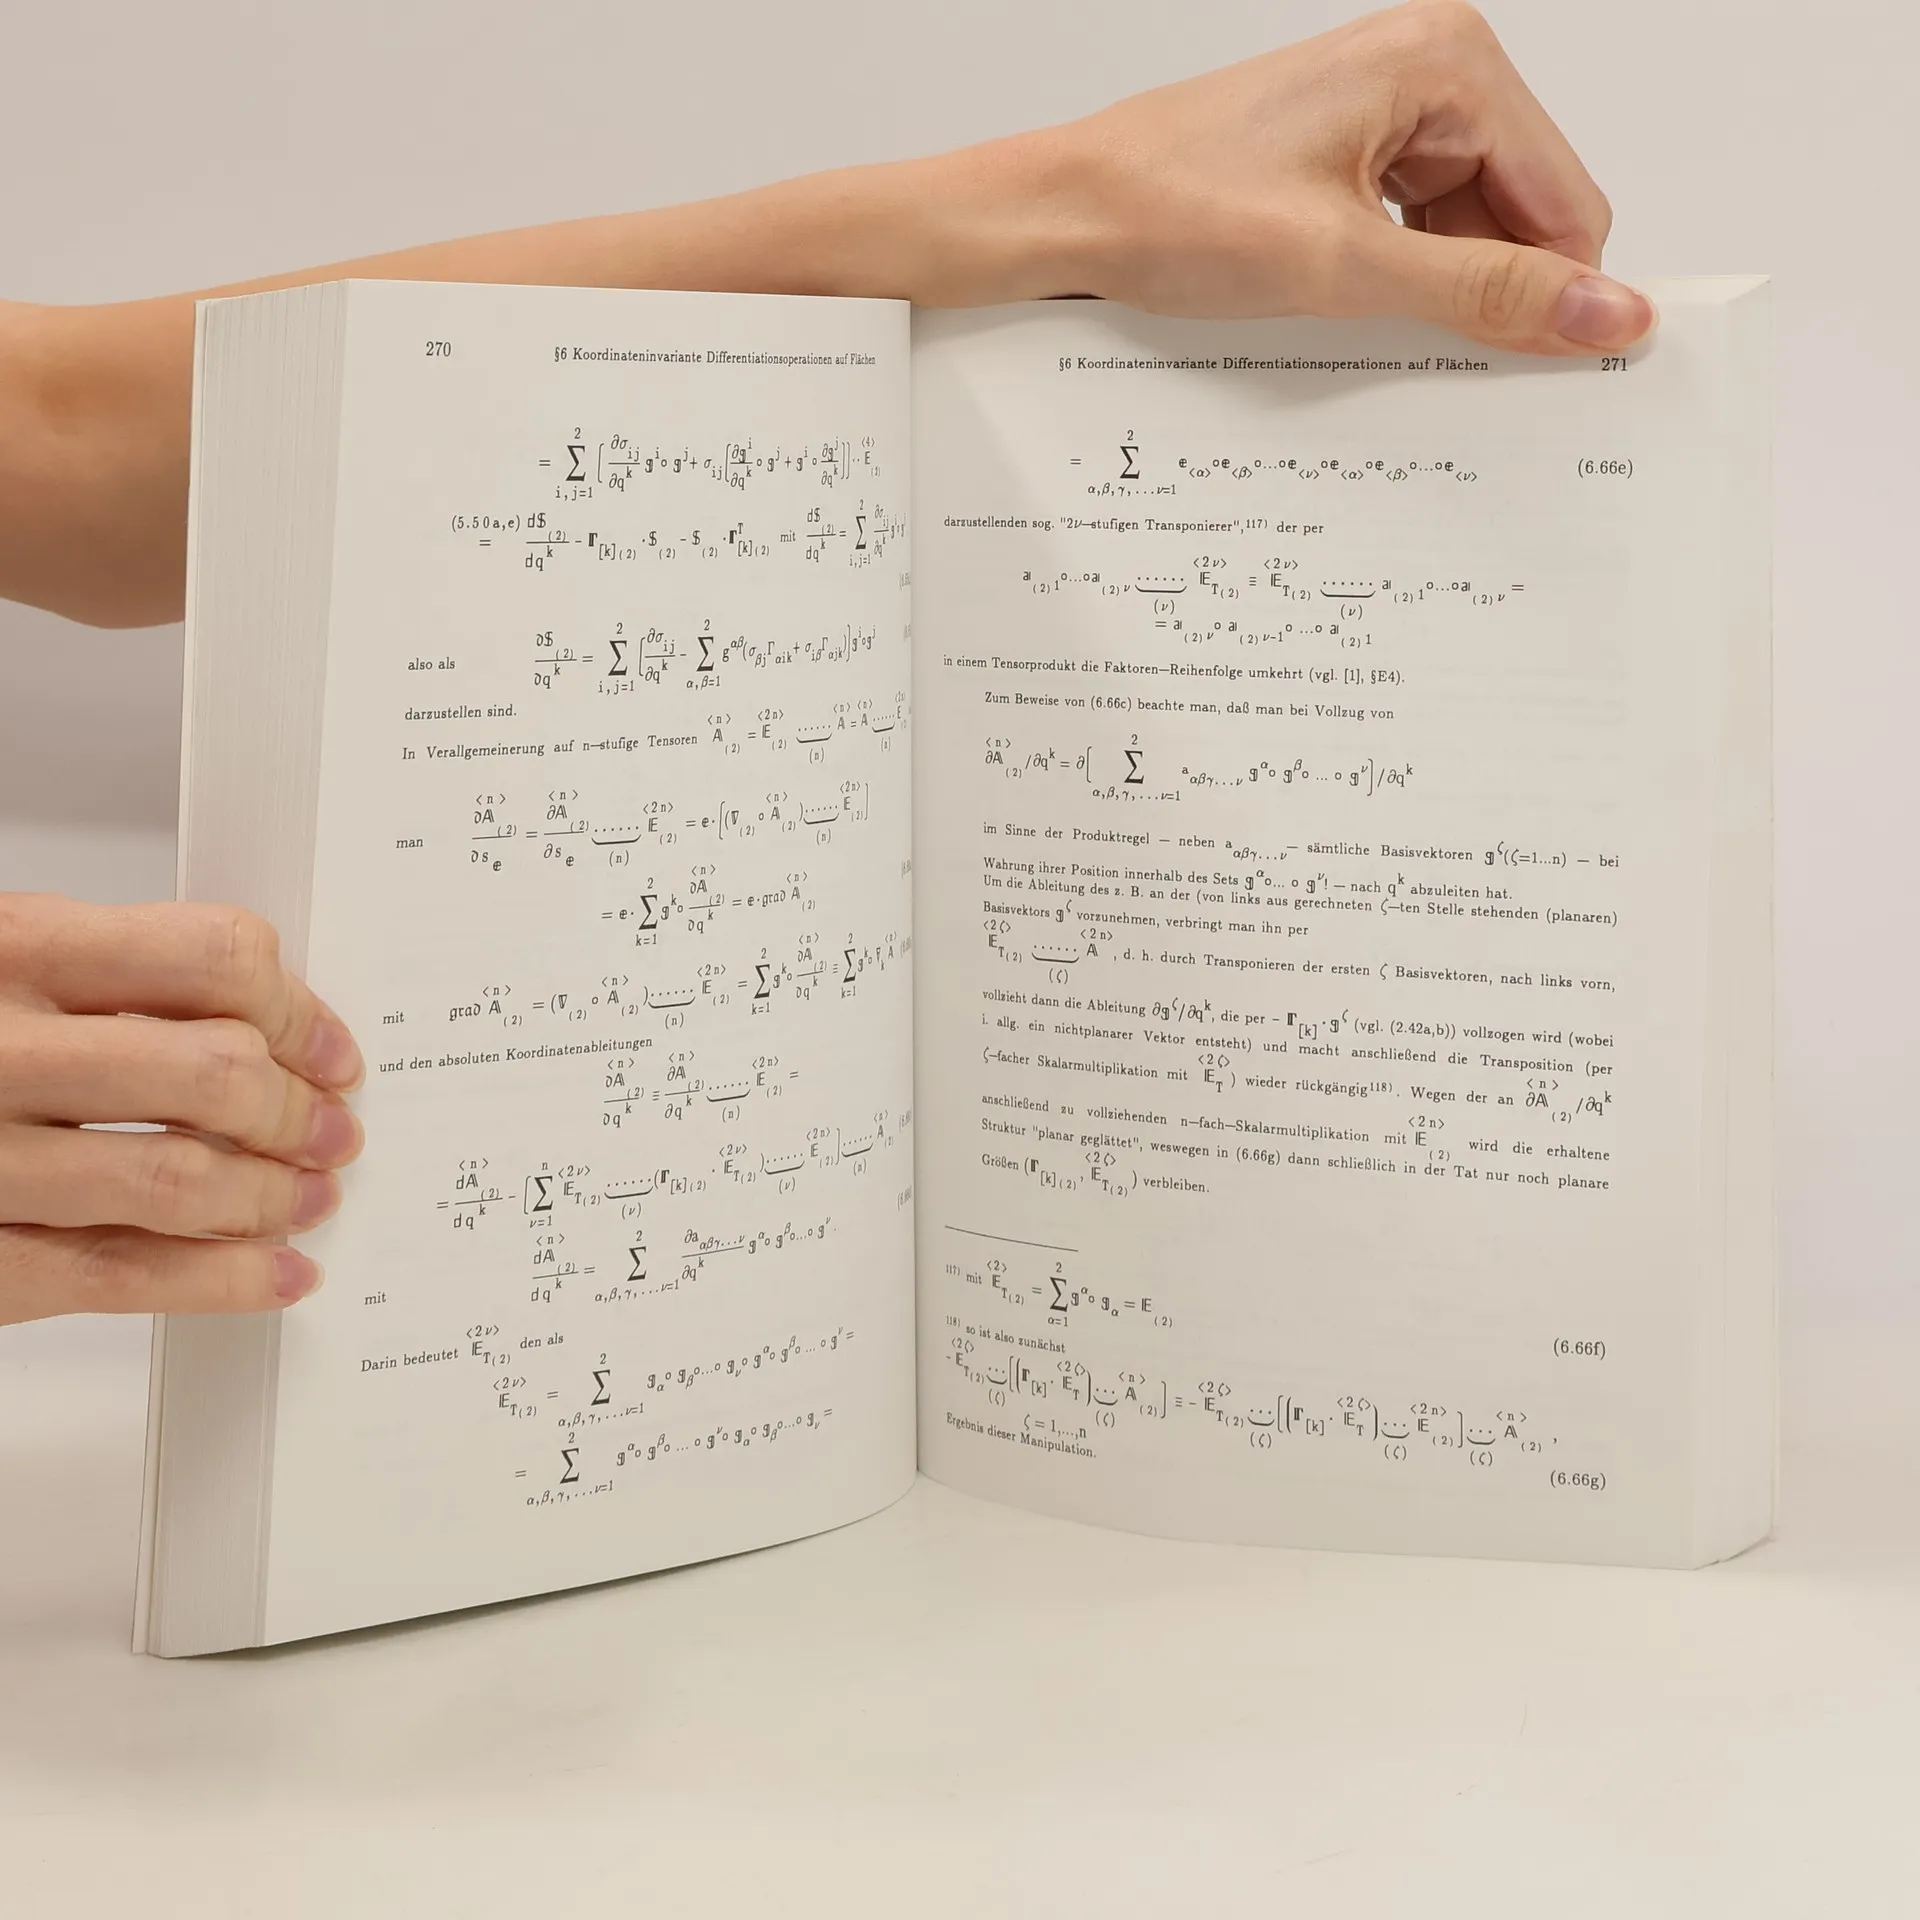 270 §6 Koordinateninvariante Differentiationsoperationen auf Flächen
= ∑_{i,j=1}^{2} [∂σ_{ij}/∂q^k 𝕘^i∘𝕘^j + σ_{ij}[∂𝕘^i/∂q^k ∘ 𝕘^j + 𝕘^i ∘ ∂𝕘^j/∂q^k]]·· 𝔼^{<4>}_{(2)}
(5.50a,e) = d𝕊_{(2)}/dq^k − 𝚪_{[k](2)} · 𝕊_{(2)} − 𝕊_{(2)} · 𝚪^T_{[k](2)} mit d𝕊_{(2)}/dq^k = ∑_{i,j=1}^{2} ∂σ_{ij}/∂q^k 𝕘^i∘𝕘^j
also als ∂𝕊_{(2)}/∂q^k = ∑_{i,j=1}^{2} [∂σ_{ij}/∂q^k − ∑_{α,β=1}^{2} g^{αβ}(σ_{βj}Γ_{αik} + σ_{iβ}Γ_{αjk})] 𝕘^i∘𝕘^j
darzustellen sind.
In Verallgemeinerung auf n−stufige Tensoren 𝔸^{<n>}_{(2)} = 𝔼^{<2n>}_{(2)} ......_{(n)} 𝔸^{<n>} = 𝔸^{<n>} ......_{(n)} 𝔼^{<2n>}_{(2)}
man ∂𝔸^{<n>}_{(2)}/∂s_𝕖 = ∂𝔸^{<n>}_{(2)}/∂s_𝕖 ......_{(n)} 𝔼^{<2n>}_{(2)} = 𝕖·[(∇_{(2)} ∘ 𝔸^{<n>}_{(2)})......_{(n)} 𝔼^{<2n>}_{(2)}]
= 𝕖· ∑_{k=1}^{2} 𝕘^k∘ ∂𝔸^{<n>}_{(2)}/∂q^k = 𝕖·grad 𝔸^{<n>}_{(2)}
mit grad 𝔸^{<n>}_{(2)} = (∇_{(2)} ∘ 𝔸^{<n>}_{(2)})......_{(n)} 𝔼^{<2n>}_{(2)} = ∑_{k=1}^{2} 𝕘^k∘ ∂𝔸^{<n>}_{(2)}/∂q^k ≡ ∑_{k=1}^{2} 𝕘^k∘ ∇_k 𝔸^{<n>}
und den absoluten Koordinatenableitungen
∂𝔸^{<n>}_{(2)}/∂q^k ≡ ∂𝔸^{<n>}_{(2)}/∂q^k ......_{(n)} 𝔼^{<2n>}_{(2)} =
= d𝔸^{<n>}_{(2)}/dq^k − [∑_{ν=1}^{n} 𝔼^{<2ν>}_{T(2)} ......_{(ν)} (𝚪_{[k](2)} · 𝔼^{<2ν>}_{T(2)})......_{(ν)} 𝔼^{<2n>}_{(2)}]......_{(n)} 𝔸^{<n>}_{(2)}
mit d𝔸^{<n>}_{(2)}/dq^k = ∑_{α,β,γ,...ν=1}^{2} ∂a_{αβγ...ν}/∂q^k 𝕘^α∘ 𝕘^β∘...∘ 𝕘^ν.
Darin bedeutet 𝔼^{<2ν>}_{T(2)} den als
𝔼^{<2ν>}_{T(2)} = ∑_{α,β,γ,...ν=1}^{2} 𝕘_α∘ 𝕘_β∘...∘ 𝕘_ν∘ 𝕘^α∘ 𝕘^β∘ ... ∘ 𝕘^ν =
= ∑_{α,β,γ,...ν=1}^{2} 𝕘^α∘ 𝕘^β∘ ... ∘ 𝕘^ν∘ 𝕘_α∘ 𝕘_β∘...∘ 𝕘_ν =
§6 Koordinateninvariante Differentiationsoperationen auf Flächen 271
= ∑_{α,β,γ,...ν=1}^{2} 𝕖_{<α>}∘𝕖_{<β>}∘...∘𝕖_{<ν>}∘𝕖_{<α>}∘𝕖_{<β>}∘...∘𝕖_{<ν>} (6.66e)
darzustellenden sog. "2ν−stufigen Transponierer",117) der per
𝕒_{(2)1}∘...∘𝕒_{(2)ν} ......_{(ν)} 𝔼^{<2ν>}_{T(2)} ≡ 𝔼^{<2ν>}_{T(2)} ......_{(ν)} 𝕒_{(2)1}∘...∘𝕒_{(2)ν} =
= 𝕒_{(2)ν}∘ 𝕒_{(2)ν−1}∘ ...∘ 𝕒_{(2)1}
in einem Tensorprodukt die Faktoren−Reihenfolge umkehrt (vgl. [1], §E4).
Zum Beweise von (6.66c) beachte man, daß man bei Vollzug von
∂𝔸^{<n>}_{(2)}/∂q^k = ∂[∑_{α,β,γ,...ν=1}^{2} a_{αβγ...ν} 𝕘^α∘ 𝕘^β∘ ... ∘ 𝕘^ν]/∂q^k
im Sinne der Produktregel − neben a_{αβγ...ν} − sämtliche Basisvektoren 𝕘^ζ(ζ=1...n) − bei
Wahrung ihrer Position innerhalb des Sets 𝕘^α∘... ∘ 𝕘^ν! − nach q^k abzuleiten hat.
Um die Ableitung des z. B. an der (von links aus gerechneten ζ−ten Stelle stehenden (planaren)
Basisvektors 𝕘^ζ vorzunehmen, verbringt man ihn per
𝔼^{<2ζ>}_{T(2)} ......_{(ζ)} 𝔸^{<2n>}, d. h. durch Transponieren der ersten ζ Basisvektoren, nach links vorn,
vollzieht dann die Ableitung ∂𝕘^ζ/∂q^k, die per − 𝚪_{[k]} · 𝕘^ζ (vgl. (2.42a,b)) vollzogen wird (wobei
i. allg. ein nichtplanarer Vektor entsteht) und macht anschließend die Transposition (per
ζ−facher Skalarmultiplikation mit 𝔼^{<2ζ>}_T) wieder rückgängig118). Wegen der an ∂𝔸^{<n>}_{(2)}/∂q^k
anschließend zu vollziehenden n−fach−Skalarmultiplikation mit 𝔼^{<2n>}_{(2)} wird die erhaltene
Struktur "planar geglättet", weswegen in (6.66g) dann schließlich in der Tat nur noch planare
Größen (𝚪_{[k](2)}, 𝔼^{<2ζ>}_{T(2)}) verbleiben.
117) mit 𝔼^{<2>}_{T(2)} = ∑_{α=1}^{2} 𝕘^α∘ 𝕘_α = 𝔼_{(2)} (6.66f)
118) so ist also zunächst
− 𝔼^{<2ζ>}_{T(2)} ..._{(ζ)} [(𝚪_{[k]} · 𝔼^{<2ζ>}_T)..._{(ζ)} 𝔸^{<n>}_{(2)}] ≡ − 𝔼^{<2ζ>}_{T(2)} ..._{(ζ)} [(𝚪_{[k]} · 𝔼^{<2ζ>}_T)..._{(ζ)} 𝔼^{<2n>}_{(2)}]..._{(ζ)} 𝔸^{<n>}_{(2)} ,
ζ = 1,...,n
Ergebnis dieser Manipulation. (6.66g)